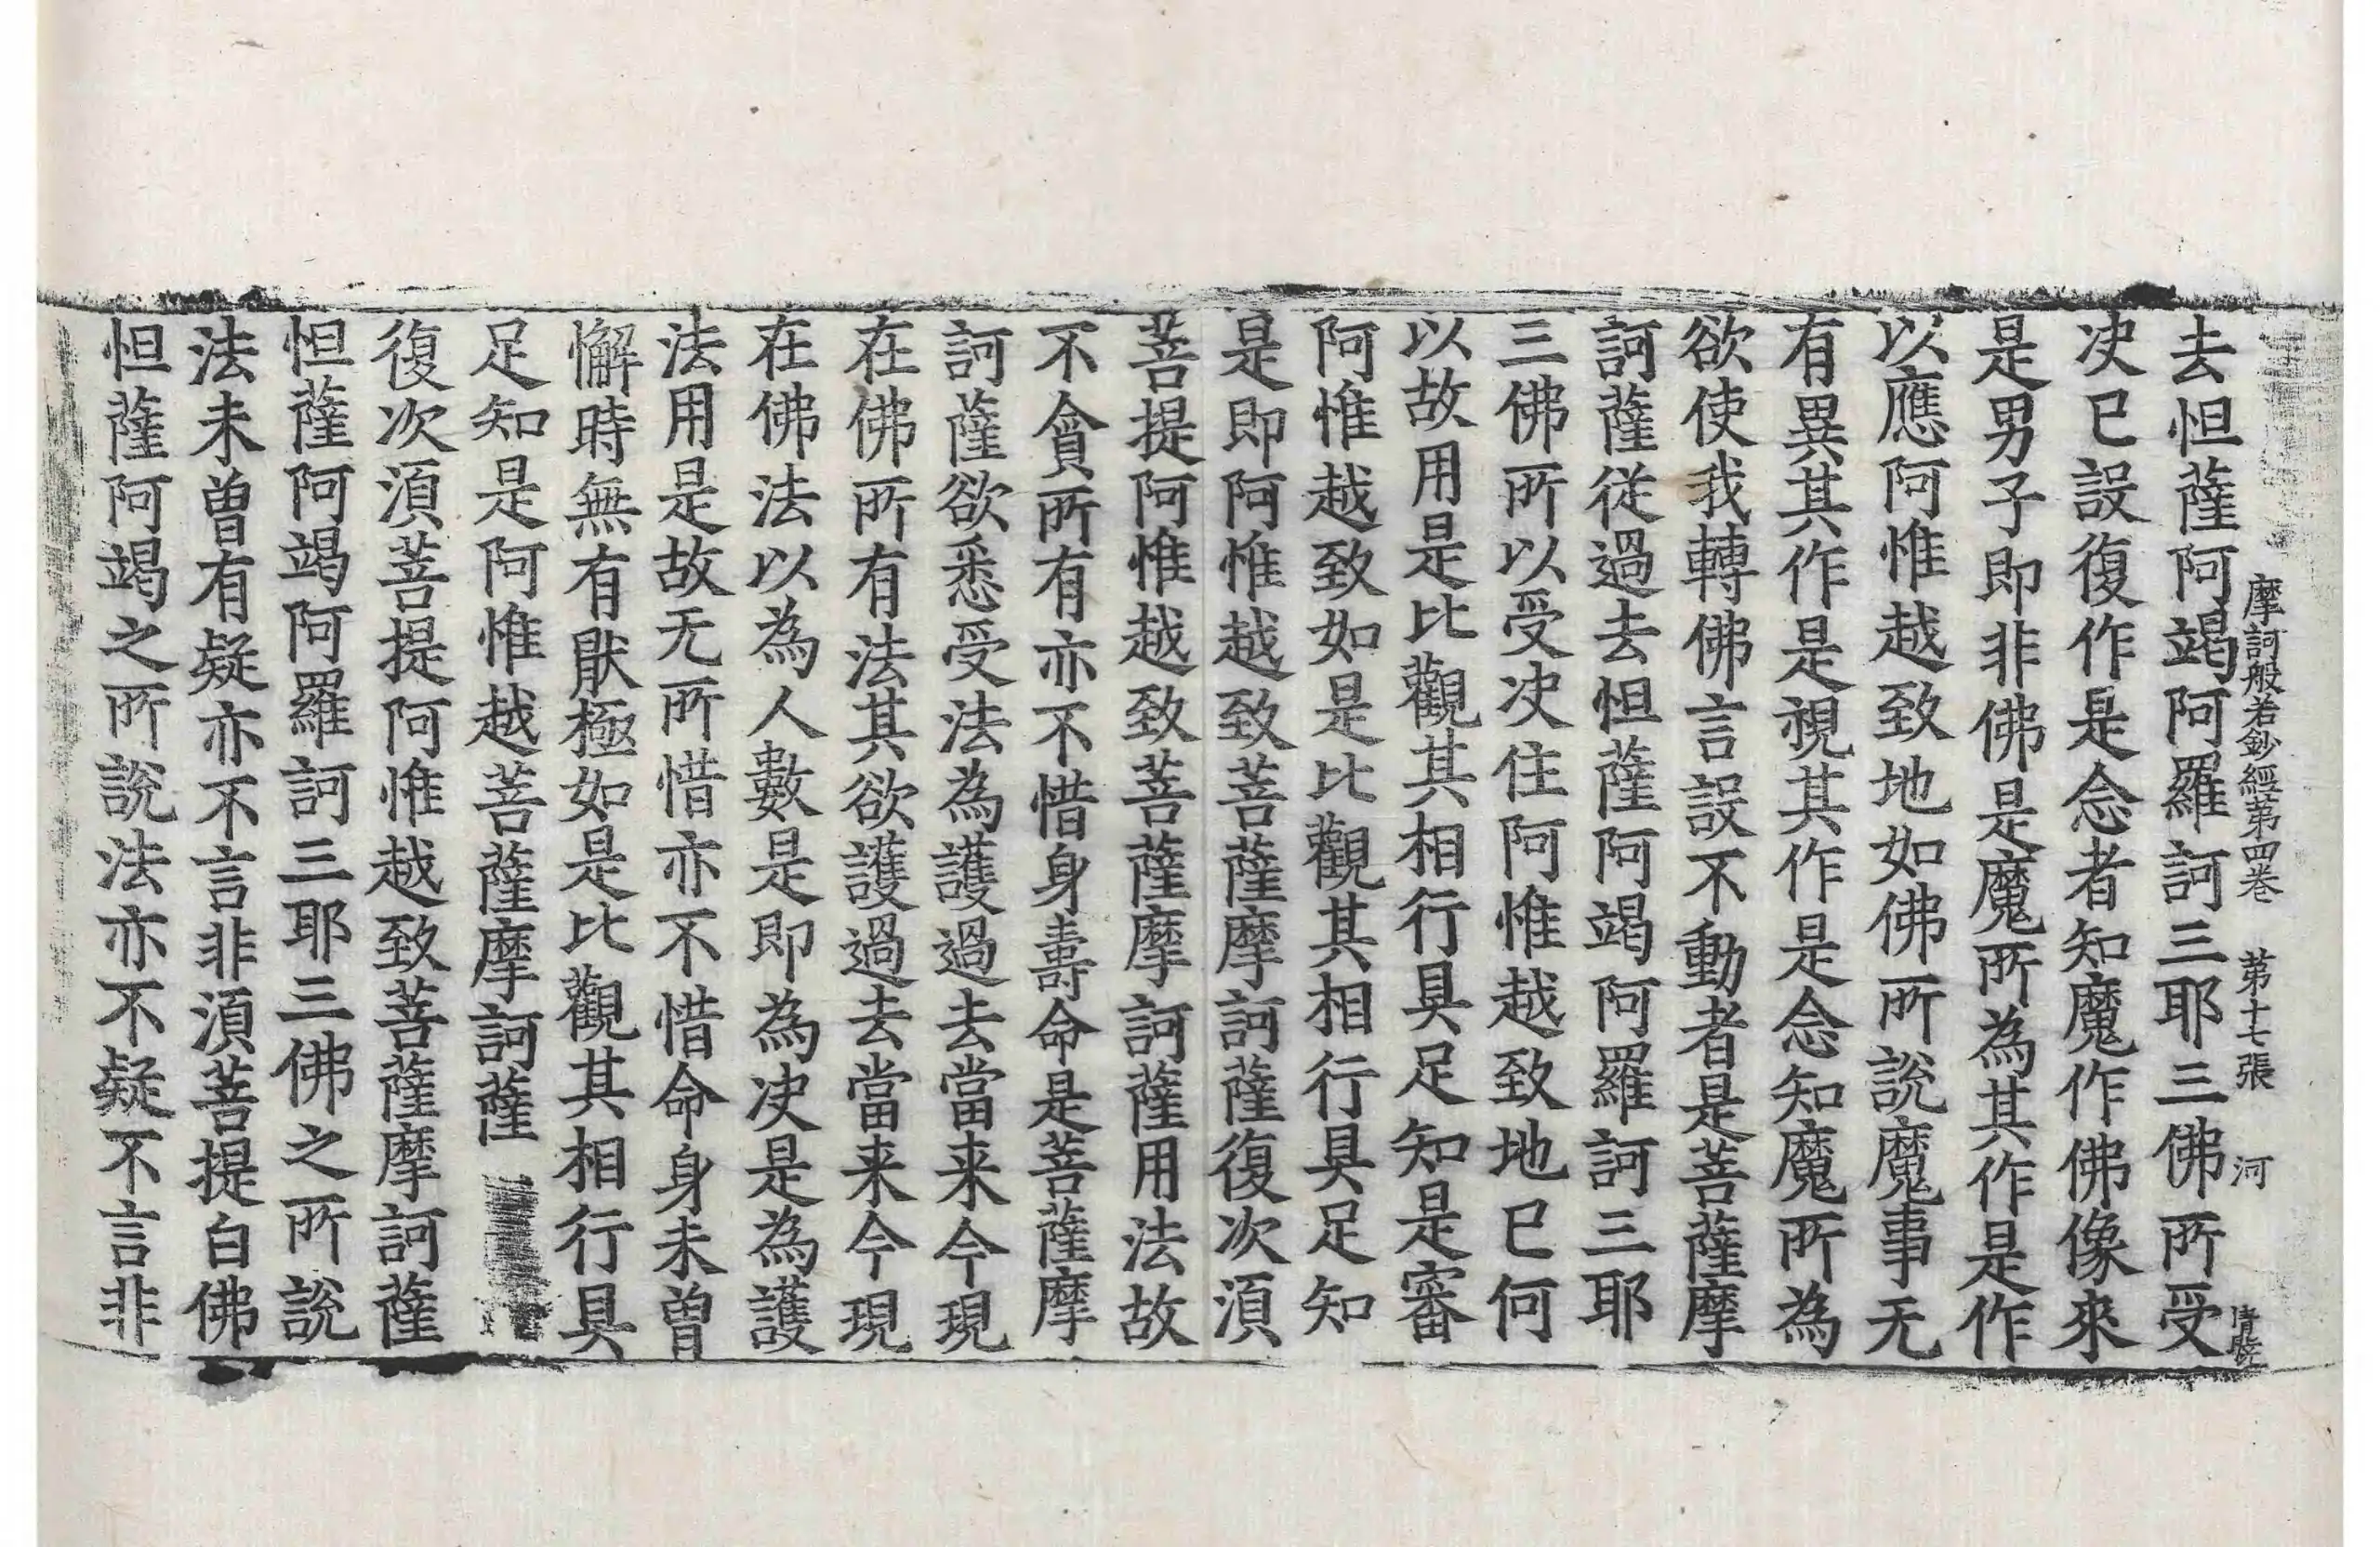 摩訶般若鈔經第四卷 第十七張 河
去怛薩阿竭阿羅訶三耶三佛所受
决已設復作是念者知魔作佛像來
是男子即非佛是魔所為其作是作
以應阿惟越致地如佛所說魔事无
有異其作是視其作是念知魔所為
欲使我轉佛言設不動者是菩薩摩
訶薩從過去怛薩阿竭阿羅訶三耶
三佛所以受决住阿惟越致地已何
以故用是比觀其相行具足知是審
阿惟越致如是比觀其相行具足知
是即阿惟越致菩薩摩訶薩復次須
菩提阿惟越致菩薩摩訶薩用法故
不貪所有亦不惜身壽命是菩薩摩
訶薩欲悉受法為護過去當来今現
在佛所有法其欲護過去當来今現
在佛法以為人數是即為决是為護
法用是故无所惜亦不惜命身未曾
懈時無有猒極如是比觀其相行具
足知是阿惟越菩薩摩訶薩
復次須菩提阿惟越致菩薩摩訶薩
怛薩阿竭阿羅訶三耶三佛之所說
法未曾有疑亦不言非須菩提白佛
怛薩阿竭之所說法亦不疑不言非